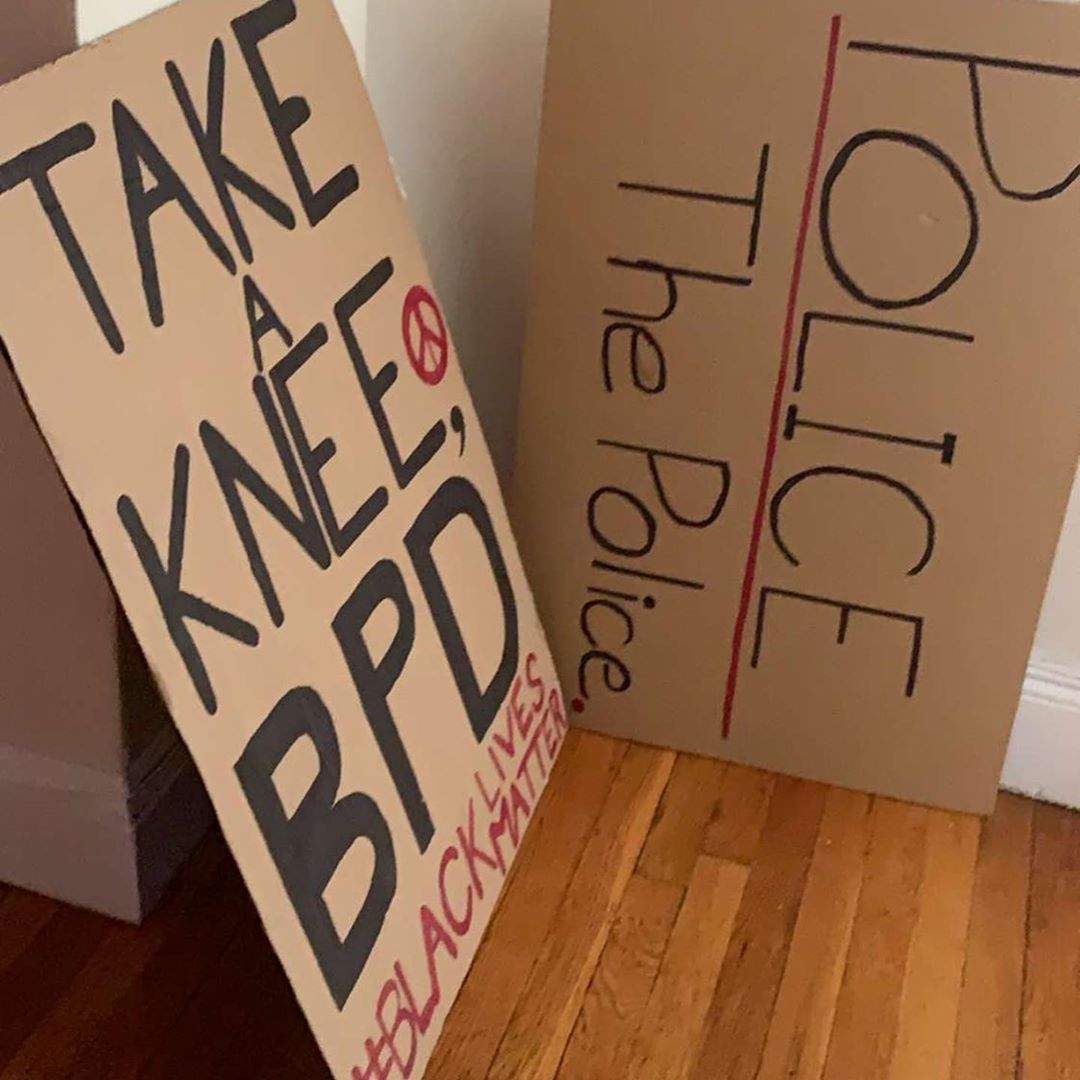 TAKE
A
KNEE,
BPD
#BLACK LIVES
MATTER
POLICE
The Police.